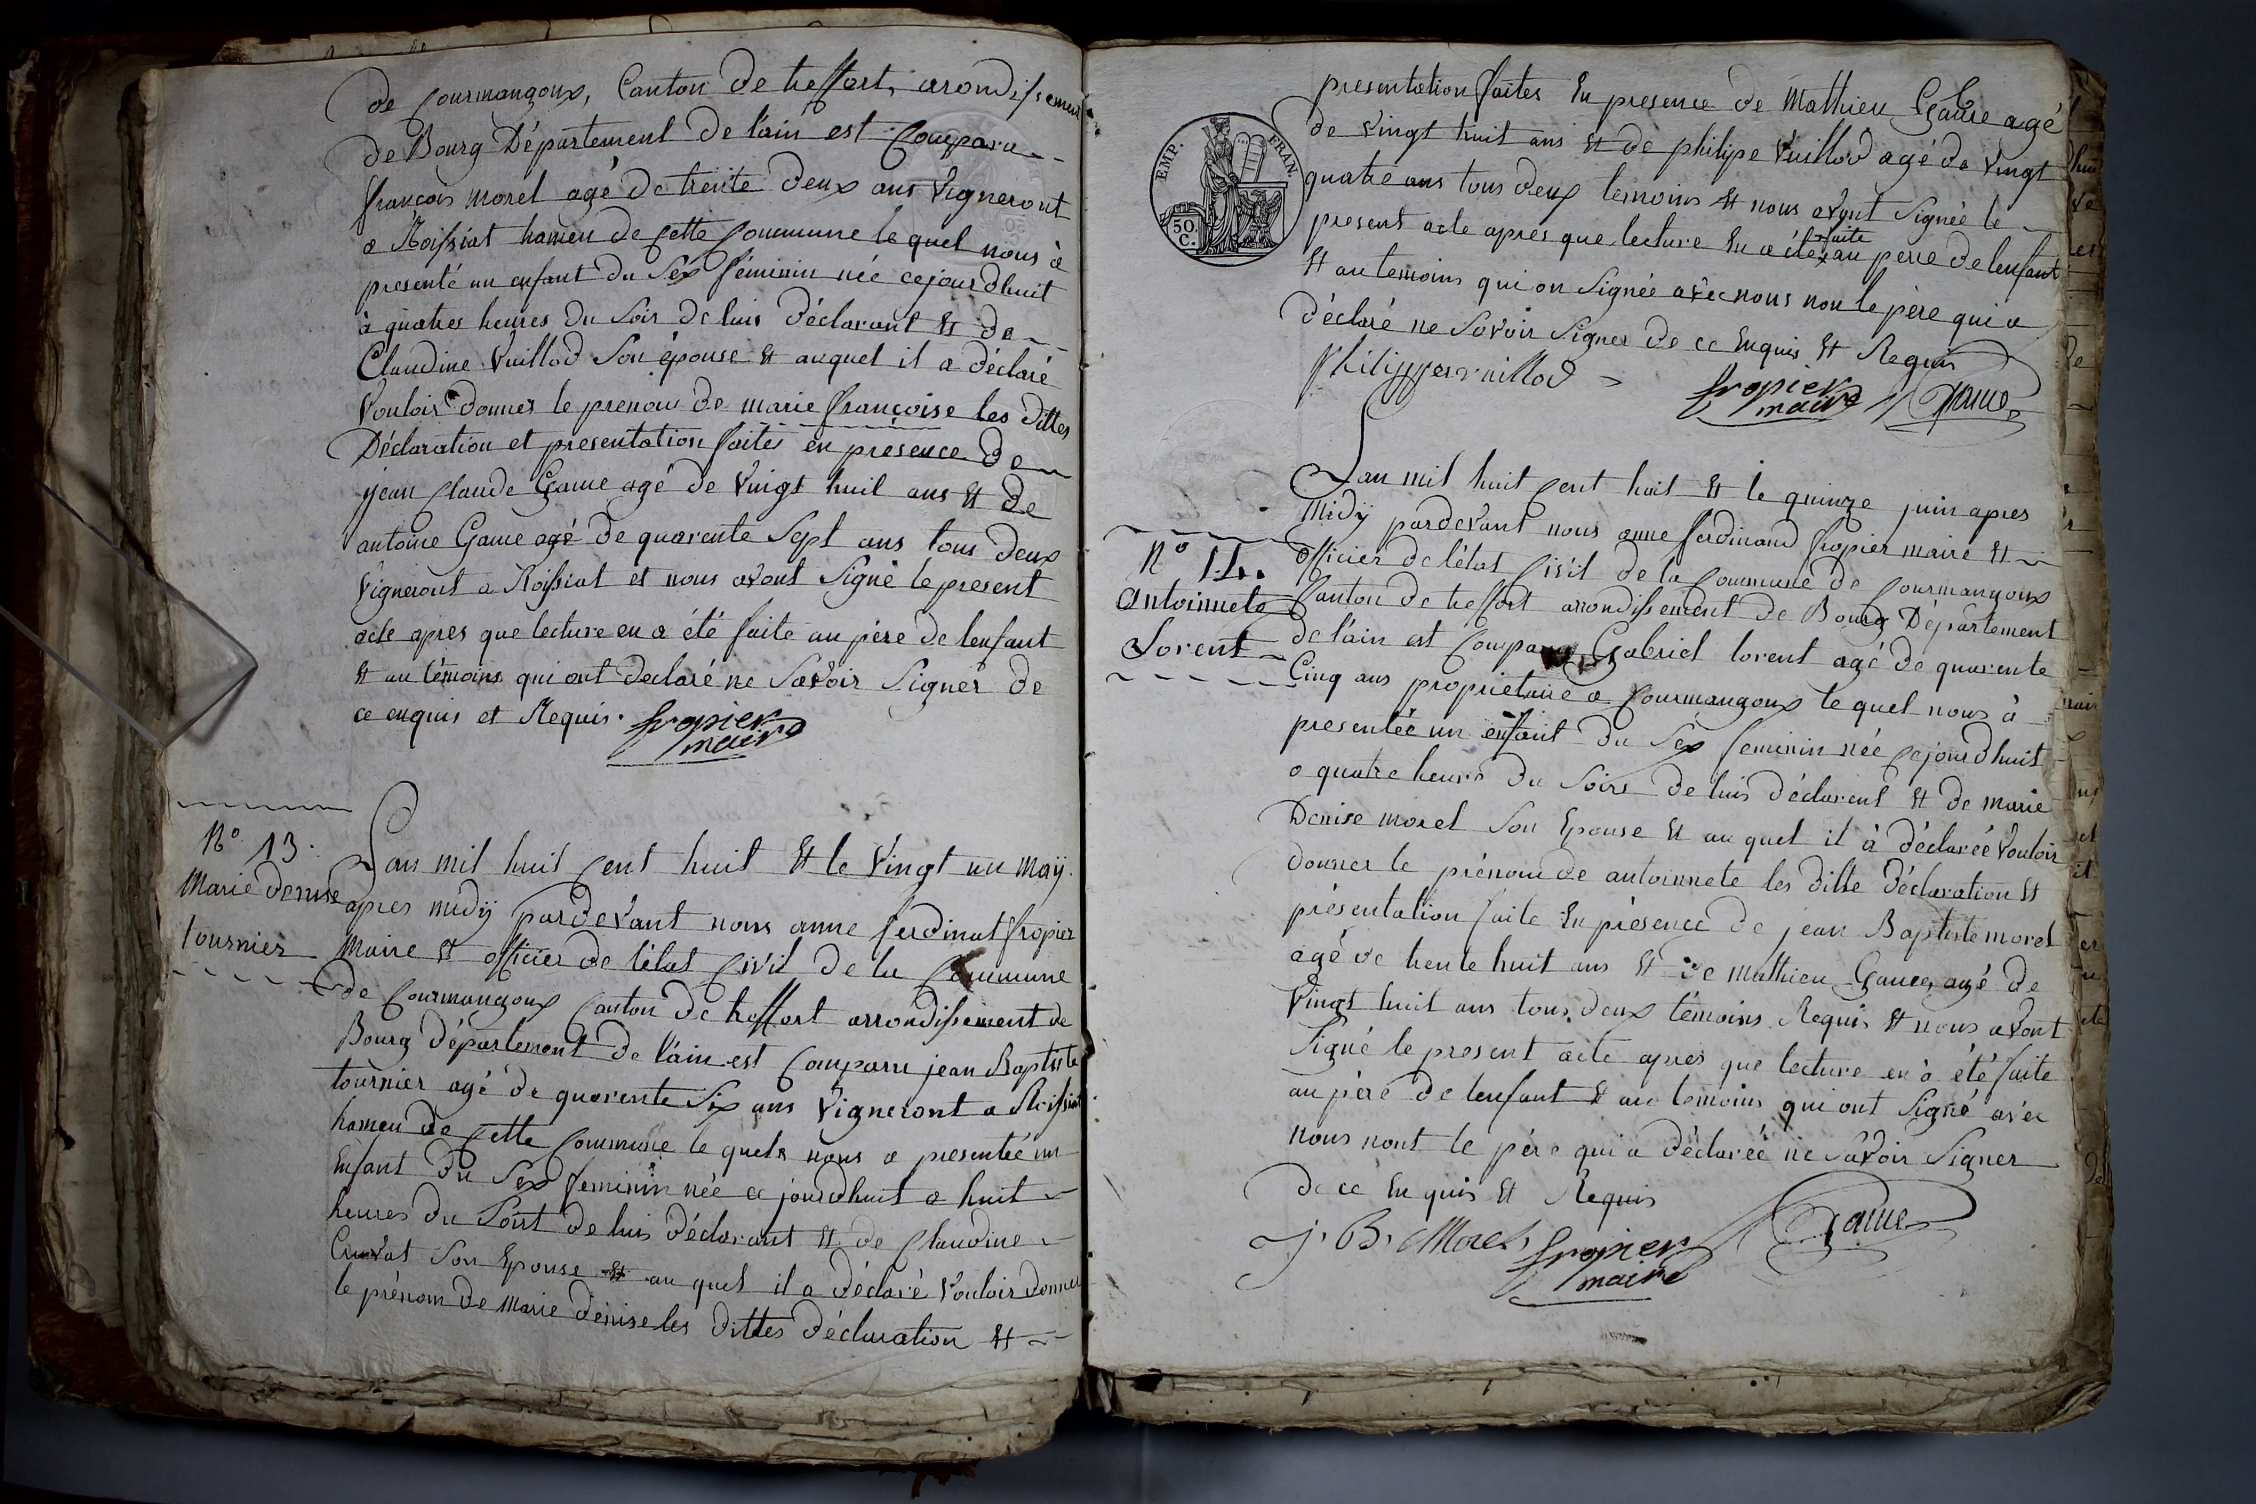 de Courmangoux, Canton de treffort, arondissement
de Bourg Département de l'ain est Comparu
françois morel agé de trente deux ans Vigneront
a Roissiat hameu de Cette Commune le quel nous à
presenté un enfant du Sex féminin née cejourdhuit
à quatres heures du Soir de luis déclarant et de
Claudine Vuillod Son épouse et auquel il a déclaré
Vouloir donner le prenom de marie françoise les dittes
Déclaration et presentation faites en présence de
jean Claude Game agé de Vingt huit ans et de
antoine Game agé de quarente Sept ans tous deux
Vigneront a Roissiat et nous avont Signé le present
acte apres que lecture en a été faite au père de lenfant
et au témoins qui ont declaré ne Savoir Signer de
ce enquis et Requis. fropier
maire
N° 13.
Marie denise
tournier
Lan mil huit Cent huit et le Vingt un maÿ
apres midÿ pardevant nous anne ferdinat fropier
Maire et officier de l'état Civil de la Commune
de Courmangoux Canton de treffort arrondissement de
Bourg Département de l'ain est Comparu jean Baptiste
tournier agé de quarente Six ans Vigneront a Roissiat
hameu de Cette Commune le quel nous a presentée un
Enfant du Sex feminin née ce jourdhuit a huit
heures du Soirt de luis déclarant et de Claudine
Son Epouse et au quel il a déclaré Vouloir donner
le prénom de Marie denise les dittes déclaration et
EMP. FRAN.
50. C.
presentation faites En presence de Mathieu Game agé
de Vingt huit ans et de philipe Vuillod agé de Vingt
quatre ans tous deux temoins et nous avont Signée le
present acte apres que lecture En a été faite au pere de lenfant
et au temoins qui on Signée avec nous non le père qui a
déclaré ne Savoir Signer de ce Enquis et Requis
philippes vuillod
fropier
maire
Game
N° 14.
Antoinnete
Lorent
Lan mil huit Cent huit et le quinze juin apres
Midÿ pardevant nous anne ferdinand fropier maire et
officier de l'état Civil de la Commune de Courmangoux
Canton de treffort arrondissement de Bourg Département
de l'ain est Comparu Gabriel lorent agé de quarente
Cinq ans proprietaire a Courmangoux le quel nous à
presentée un enfant du Sex feminin née Cejourdhuit
a quatre heures du Soire de luis déclarent et de marie
Denise morel Son Epouse et au quel il à déclarée Vouloir
donner le prénom de antoinnete les ditte déclaration et
présentation faite En présence de jean Baptiste morel
agé de trente huit ans et de mathieu Game agé de
Vingt huit ans tous deux témoins Requis et nous avont
Signé le present acte apres que lecture en à été faite
au père de lenfant et au temoins qui ont Signé avec
nous nont le père qui a déclarée ne Savoir Signer
de ce En quis et Requis
J. B. Morel
fropier
maire
Game